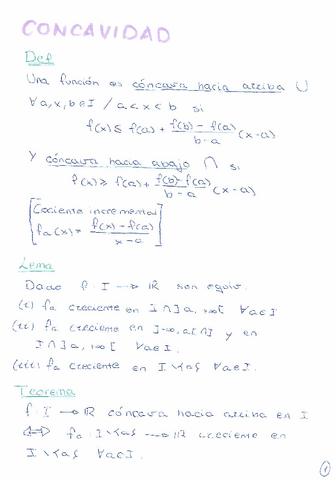 CONCAVIDAD
Def
Una función es cóncava hacia arriba ∪
∀a,x,b∈I / a<x<b si
f(x) ≤ f(a) + \frac{f(b) - f(a)}{b-a} (x-a)
Y cóncava hacia abajo ∩ si
f(x) ≥ f(a) + \frac{f(b)-f(a)}{b-a} (x-a)
[Cociente incremental
f_a(x) = \frac{f(x) - f(a)}{x-a}]
Lema
Dado f: I → ℝ son equiv.
(i) f_a creciente en I∩]a, +∞[ ∀a∈I
(ii) f_a creciente en ]-∞,a[∩I y en
I∩]a, +∞[ ∀a∈I.
(iii) f_a creciente en I∖{a} ∀a∈I.
Teorema
f: I → ℝ cóncava hacia arriba en I
⟺ f_a: I∖{a} → ℝ creciente en
I∖{a} ∀a∈I.
1